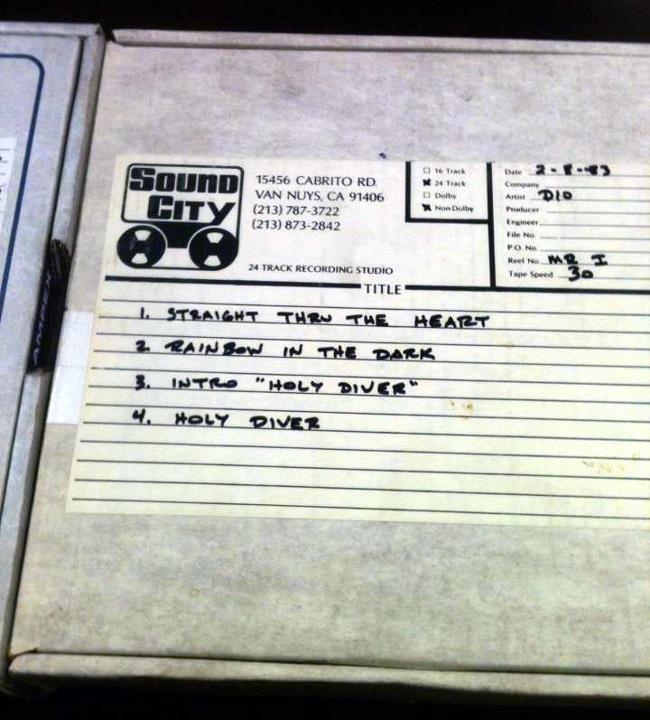 SOUND CITY
15456 CABRITO RD.
VAN NUYS, CA 91406
(213) 787-3722
(213) 873-2842
24 TRACK RECORDING STUDIO
16 Track
24 Track
Dolby
Non-Dolby
Date 2-8-83
Company
Artist DIO
Producer
Engineer
File No.
P.O. No.
Reel No. MR I
Tape Speed 30
TITLE
1. STRAIGHT THRU THE HEART
2. RAINBOW IN THE DARK
3. INTRO "HOLY DIVER"
4. HOLY DIVER
AMPEX